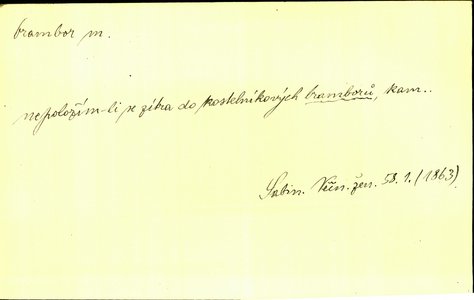 brambor m.
nepoložím-li se zítra do kostelníkových bramborů, kam..
Sabin. Věn. žen. 58. 1. (1863).